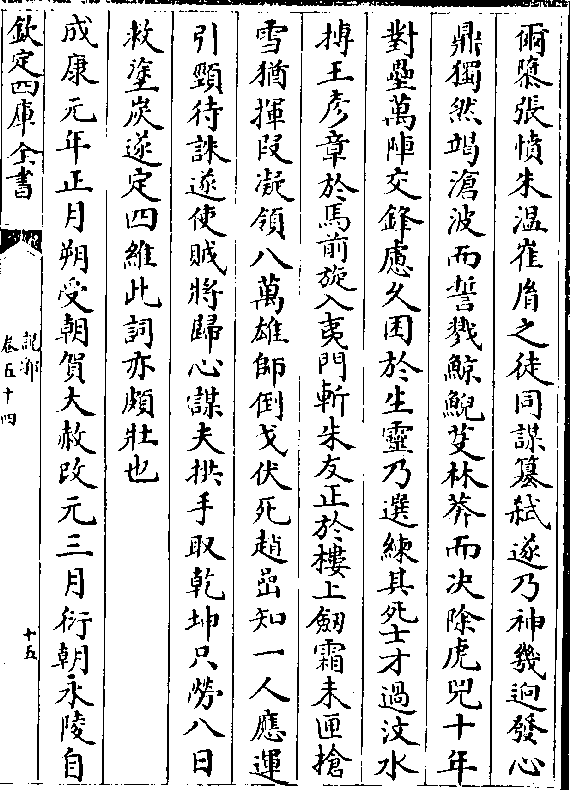 爾隳張憤朱溫崔胤之徒同謀篡弒遂乃神機迥發心
鼎獨然竭滄波而誓戮鯨鯢芟林莽而決除虎兕十年
對壘萬陣交鋒慮久困於生靈乃選練其死士才過汶水
搏王彥章於馬前旋入夷門斬朱友正於樓上劒霜未匣槍
雪猶揮段凝領八萬雄師倒戈伏死趙嵒知一人應運
引頸待誅遂使賊將歸心謀夫拱手取乾坤只勞八日
救塗炭遂定四維此詞亦頗壯也
成康元年正月朔受朝賀大赦改元三月衍朝永陵自
欽定四庫全書
說郛
卷五十四
十五